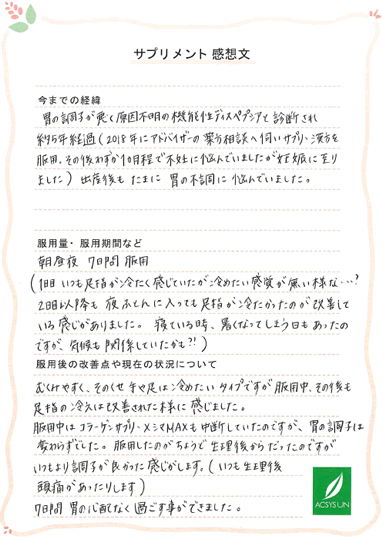 サプリメント 感想文
今までの経緯
胃の調子が悪く原因不明の機能性ディスペプシアと診断され
約5年経過(2018年にアドバイザーの薬方相談へ伺いサプリ・漢方を
服用。その後わずか10月程で不妊に悩んでいましたが妊娠に至り
ました) 出産後も たまに 胃の不調に 悩んでいました。
服用量・服用期間など
朝昼夜 7日間 服用
(1日目 いつも足指が冷たく感じていたが冷めたい感覚が無い様な…?
2日目以降も 夜ふとんに入っても足指が冷たかったのが改善して
いる感じがありました。 寝ている時、暑くなってしまう日もあったの
ですが、気候も関係していたかも?!)
服用後の改善点や現在の状況について
むくみやすく、そのくせ 手や足は冷めたいタイプですが服用中、その後も
足指の冷えは改善された様に 感じました。
服用中は コラーゲンサプリ・メシマMAXも中断していたのですが、胃の調子は
変わらずでした。 服用したのがちょうど 生理後からだったのですが
いつもより調子が良かった感じがします。(いつも生理後
頭痛があったりします)
7日間 胃の心配なく 過ごす事ができました。
ACSYS UN